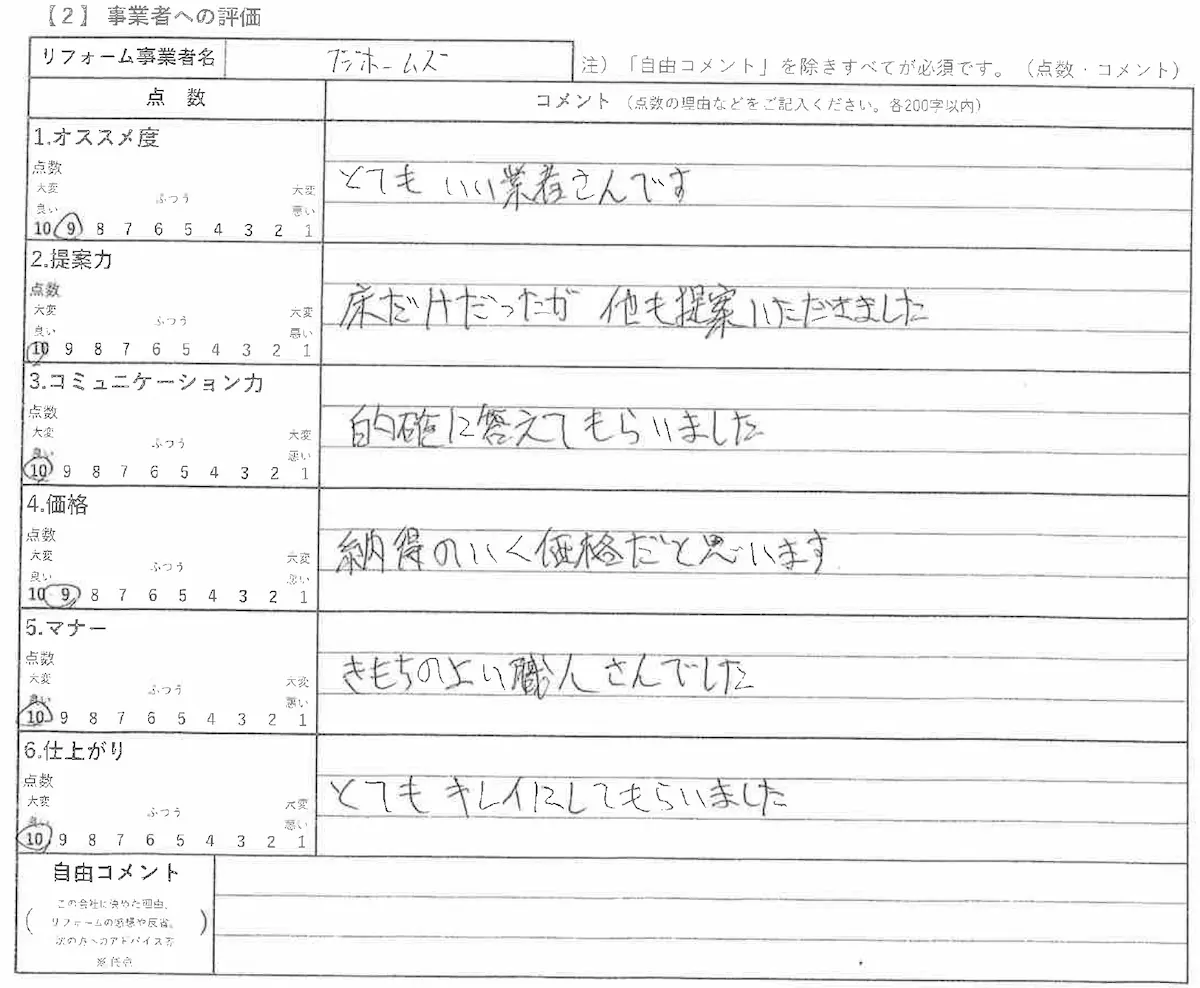 【2】事業者への評価
リフォーム事業者名
ホームズ
注）「自由コメント」を除きすべてが必須です。（点数・コメント）
点 数
コメント（点数の理由などをご記入ください。各200字以内）
1.オススメ度
点数
大変 ふつう 大変
良い 悪い
10 9 8 7 6 5 4 3 2 1
とても いい業者さんです
2.提案力
点数
大変 ふつう 大変
良い 悪い
10 9 8 7 6 5 4 3 2 1
床だけだったが 他も提案いただきました
3.コミュニケーション力
点数
大変 ふつう 大変
良い 悪い
10 9 8 7 6 5 4 3 2 1
的確に答えてもらいました
4.価格
点数
大変 ふつう 大変
良い 悪い
10 9 8 7 6 5 4 3 2 1
納得のいく価格だと思います
5.マナー
点数
大変 ふつう 大変
良い 悪い
10 9 8 7 6 5 4 3 2 1
きもちのよい職人さんでした
6.仕上がり
点数
大変 ふつう 大変
良い 悪い
10 9 8 7 6 5 4 3 2 1
とても キレイにしてもらいました
自由コメント
この会社に決めた理由、
リフォームの感想や反省、
次の方へのアドバイス等
※任意